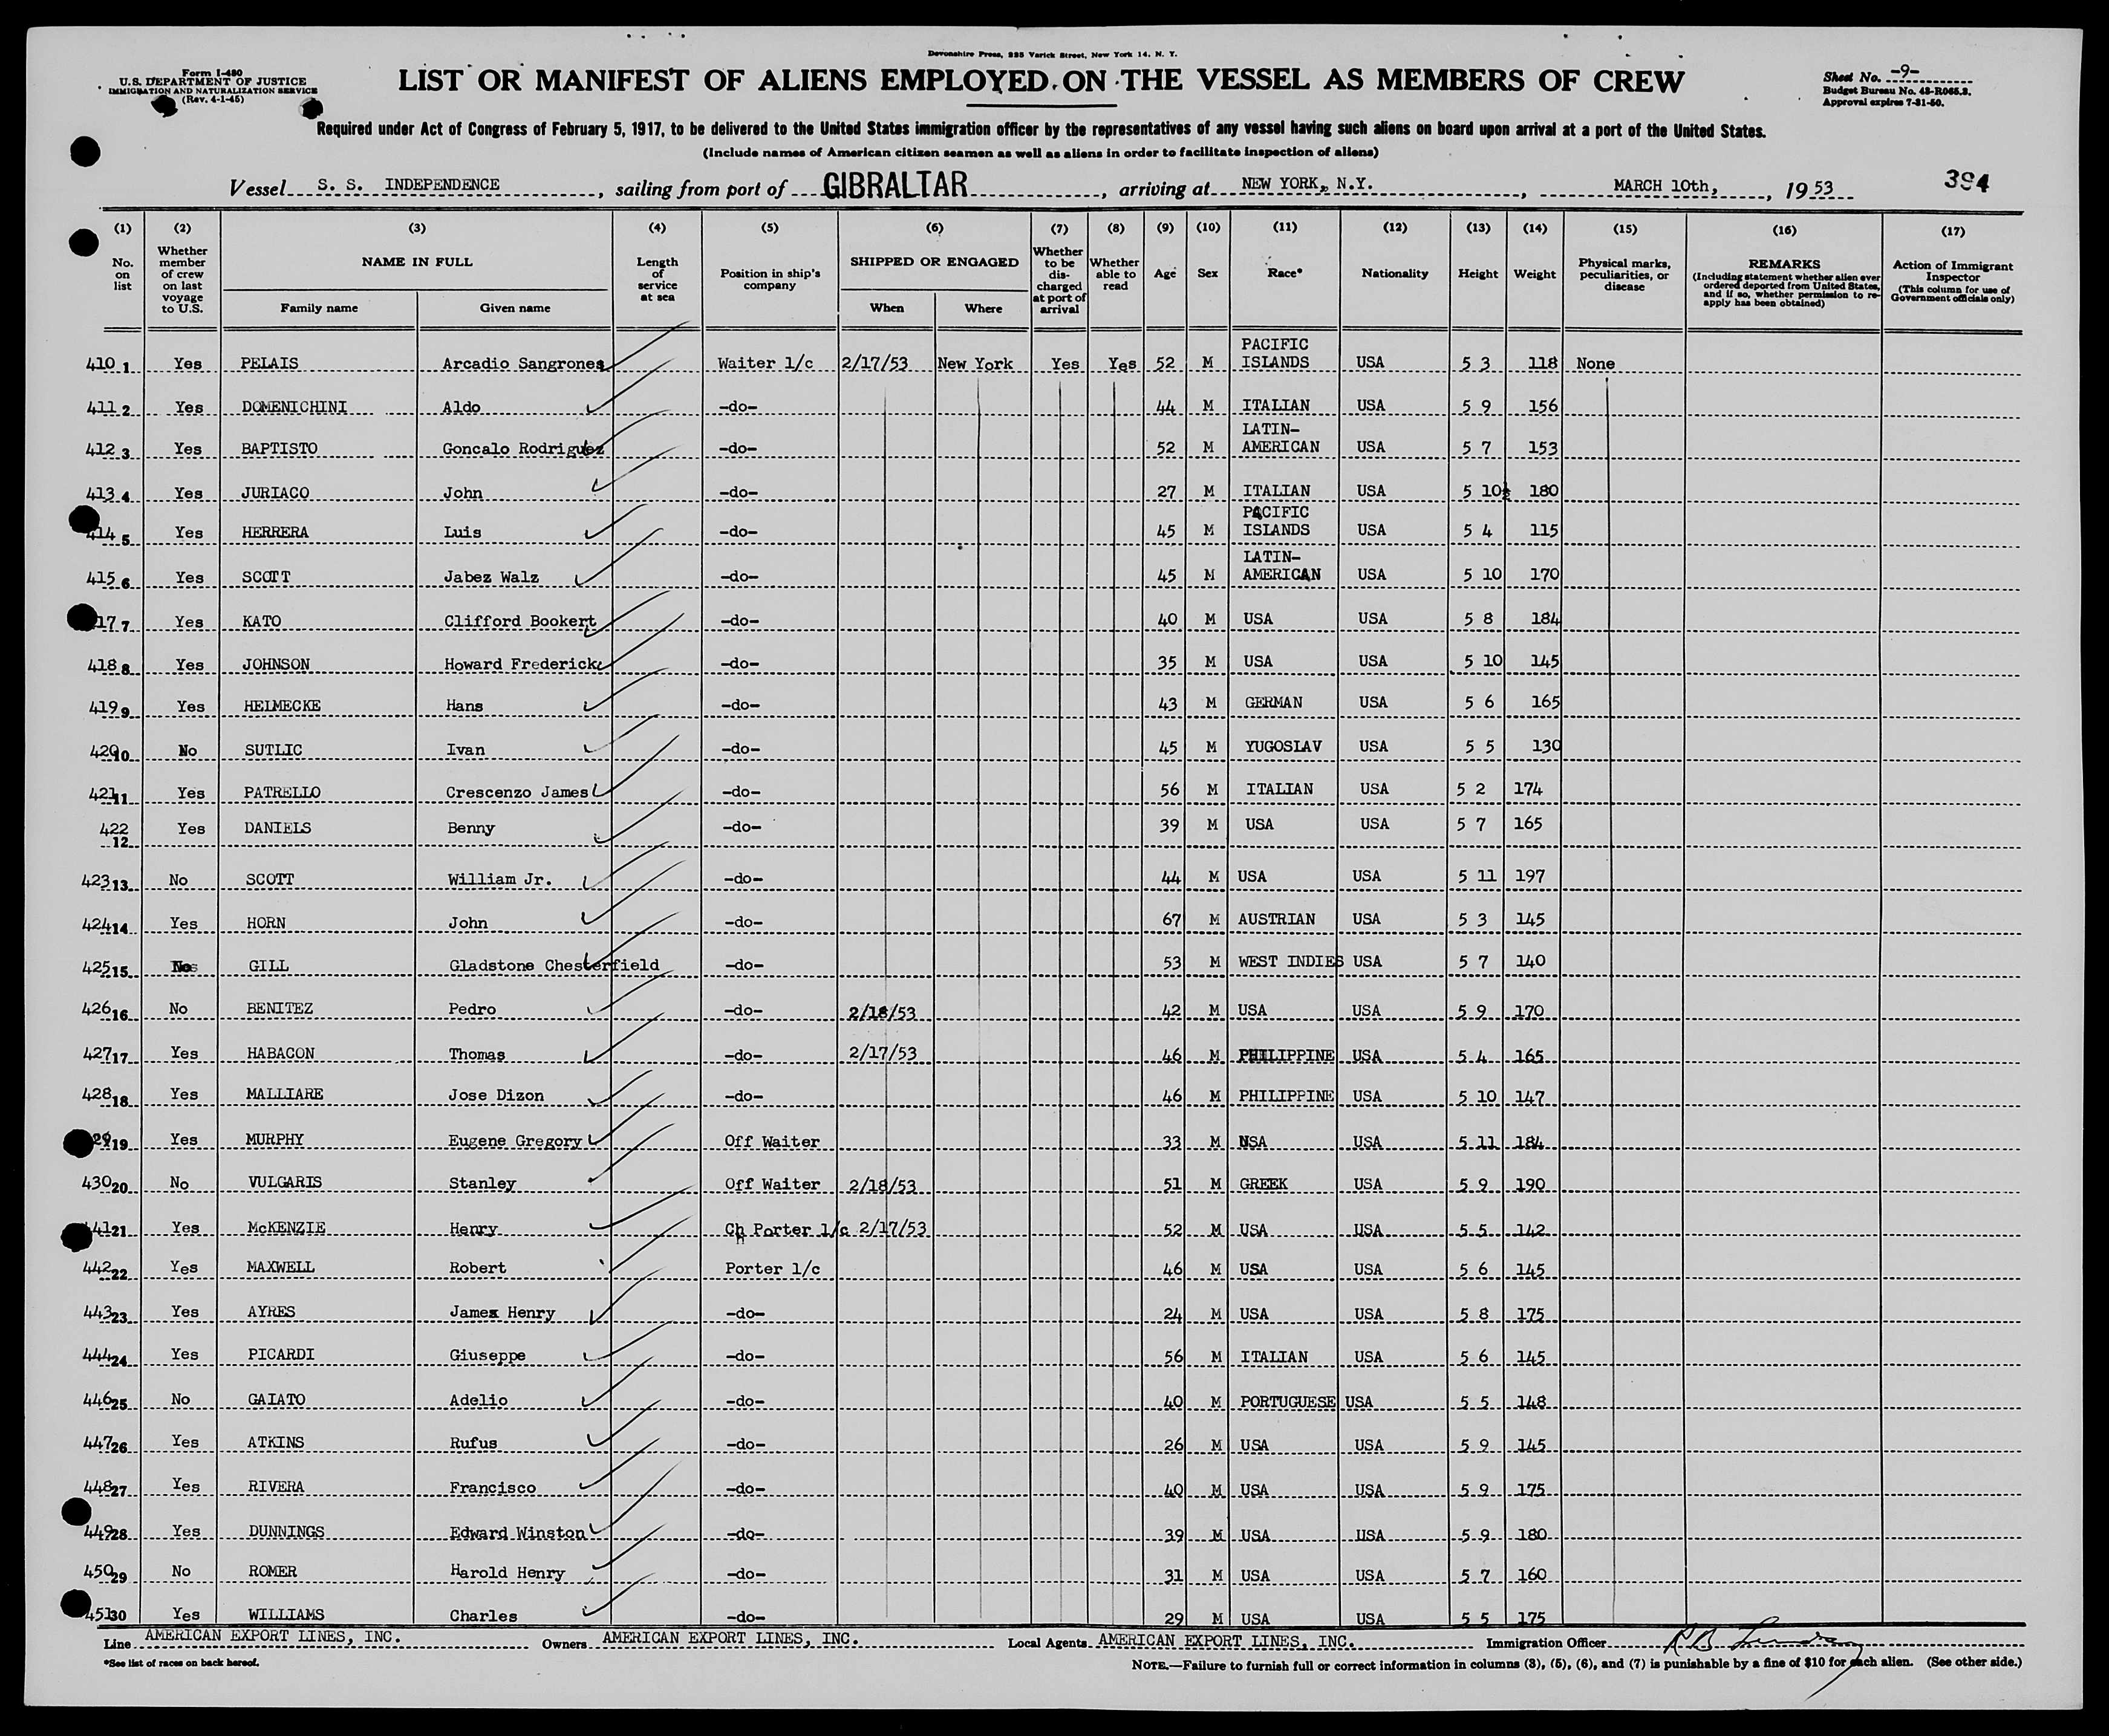 Devonshire Press, 225 Varick Street, New York 14, N. Y.
Form I-480
U.S. DEPARTMENT OF JUSTICE
IMMIGRATION AND NATURALIZATION SERVICE
(Rev. 4-1-45)
LIST OR MANIFEST OF ALIENS EMPLOYED ON THE VESSEL AS MEMBERS OF CREW
Sheet No. -9-
Budget Bureau No. 43-R065.3.
Approval expires 7-31-50.
Required under Act of Congress of February 5, 1917, to be delivered to the United States immigration officer by the representatives of any vessel having such aliens on board upon arrival at a port of the United States.
(Include names of American citizen seamen as well as aliens in order to facilitate inspection of aliens)
Vessel S. S. INDEPENDENCE, sailing from port of GIBRALTAR, arriving at NEW YORK, N.Y., MARCH 10th, 1953
394
(1) (2) (3) (4) (5) (6) (7) (8) (9) (10) (11) (12) (13) (14) (15) (16) (17)
No. on list
Whether member of crew on last voyage to U.S.
NAME IN FULL
Family name
Given name
Length of service at sea
Position in ship's company
SHIPPED OR ENGAGED
When
Where
Whether to be discharged at port of arrival
Whether able to read
Age
Sex
Race*
Nationality
Height
Weight
Physical marks, peculiarities, or disease
REMARKS
(Including statement whether alien ever ordered deported from United States, and if so, whether permission to re-apply has been obtained)
Action of Immigrant Inspector
(This column for use of Government officials only)
410 1 Yes PELAIS Arcadio Sangrones Waiter 1/c 2/17/53 New York Yes Yes 52 M PACIFIC ISLANDS USA 5 3 118 None
411 2 Yes DOMENICHINI Aldo -do- 44 M ITALIAN USA 5 9 156
412 3 Yes BAPTISTO Goncalo Rodriguez -do- 52 M LATIN-AMERICAN USA 5 7 153
413 4 Yes JURIACO John -do- 27 M ITALIAN USA 5 10½ 180
414 5 Yes HERRERA Luis -do- 45 M PACIFIC ISLANDS USA 5 4 115
415 6 Yes SCOTT Jabez Walz -do- 45 M LATIN-AMERICAN USA 5 10 170
17 7 Yes KATO Clifford Bookert -do- 40 M USA USA 5 8 184
418 8 Yes JOHNSON Howard Frederick -do- 35 M USA USA 5 10 145
419 9 Yes HELMECKE Hans -do- 43 M GERMAN USA 5 6 165
420 10 No SUTLIC Ivan -do- 45 M YUGOSLAV USA 5 5 130
421 11 Yes PATRELLO Crescenzo James -do- 56 M ITALIAN USA 5 2 174
422 12 Yes DANIELS Benny -do- 39 M USA USA 5 7 165
423 13 No SCOTT William Jr. -do- 44 M USA USA 5 11 197
424 14 Yes HORN John -do- 67 M AUSTRIAN USA 5 3 145
425 15 GILL Gladstone Chesterfield -do- 53 M WEST INDIES USA 5 7 140
426 16 No BENITEZ Pedro -do- 2/18/53 42 M USA USA 5 9 170
427 17 Yes HABACON Thomas -do- 2/17/53 46 M PHILIPPINE USA 5 4 165
428 18 Yes MALLIARE Jose Dizon -do- 46 M PHILIPPINE USA 5 10 147
29 19 Yes MURPHY Eugene Gregory Off Waiter 33 M USA USA 5 11 184
430 20 No VULGARIS Stanley Off Waiter 2/18/53 51 M GREEK USA 5 9 190
441 21 Yes McKENZIE Henry Ch Porter 1/c 2/17/53 52 M USA USA 5 5 142
442 22 Yes MAXWELL Robert Porter 1/c 46 M USA USA 5 6 145
443 23 Yes AYRES James Henry -do- 24 M USA USA 5 8 175
444 24 Yes PICARDI Giuseppe -do- 56 M ITALIAN USA 5 6 145
446 25 No GAIATO Adelio -do- 40 M PORTUGUESE USA 5 5 148
447 26 Yes ATKINS Rufus -do- 26 M USA USA 5 9 145
448 27 Yes RIVERA Francisco -do- 40 M USA USA 5 9 175
449 28 Yes DUNNINGS Edward Winston -do- 39 M USA USA 5 9 180
450 29 No ROMER Harold Henry -do- 31 M USA USA 5 7 160
451 30 Yes WILLIAMS Charles -do- 29 M USA USA 5 5 175
Line AMERICAN EXPORT LINES, INC. Owners AMERICAN EXPORT LINES, INC. Local Agents AMERICAN EXPORT LINES, INC. Immigration Officer
*See list of races on back hereof.
NOTE.—Failure to furnish full or correct information in columns (3), (5), (6), and (7) is punishable by a fine of $10 for each alien. (See other side.)